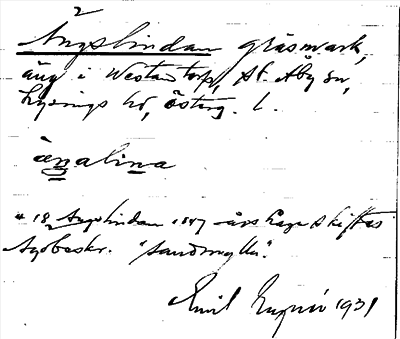 2
Ängslindan gräsmark,
äng i Westantorp, St. Åby sn,
Lysings hd, Österg. l.
äŋalina
" 18 Ängslindan 1847 års Laga skiftes
Ägobeskr. "Sandmylla".
Emil 1931